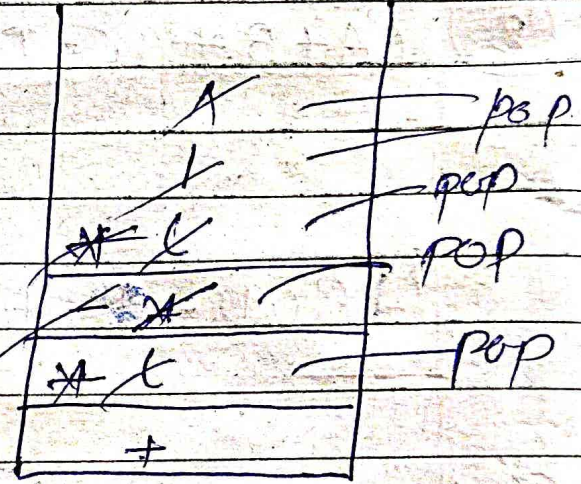 ^ pop
/ pop
* ( pop
- *
* ( pop
+